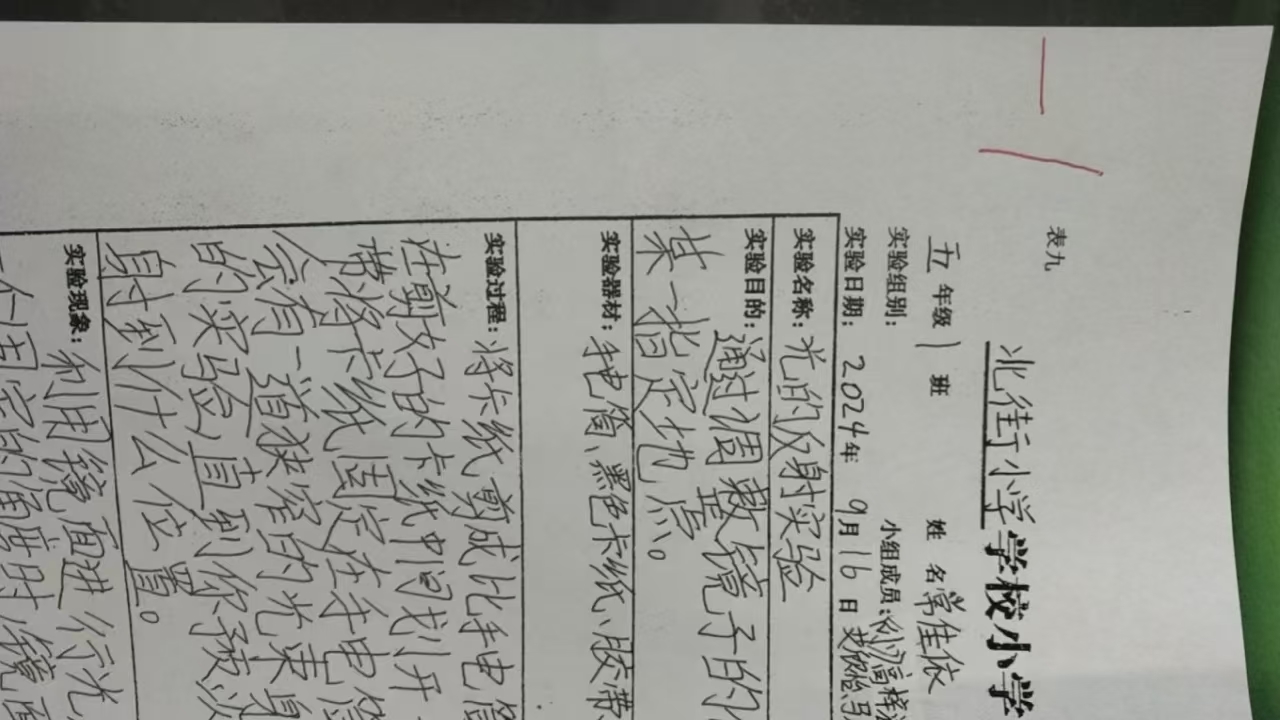 表九
北街小学学校小学
五年级1班 姓名常佳依
实验组别: 小组成员:
实验日期: 2024年9月16日
实验名称:光的反射实验
实验目的:通过调整镜子的
某一指定地点。
实验器材:手电筒、黑色卡纸、胶带、
实验过程:将卡纸剪成比手电筒
在剪好的卡纸中间划开
带将卡纸固定在手电筒
会有一道狭窄的光束身
的实验,直到你预测
射到什么位置。
实验现象:利用镜面进行光